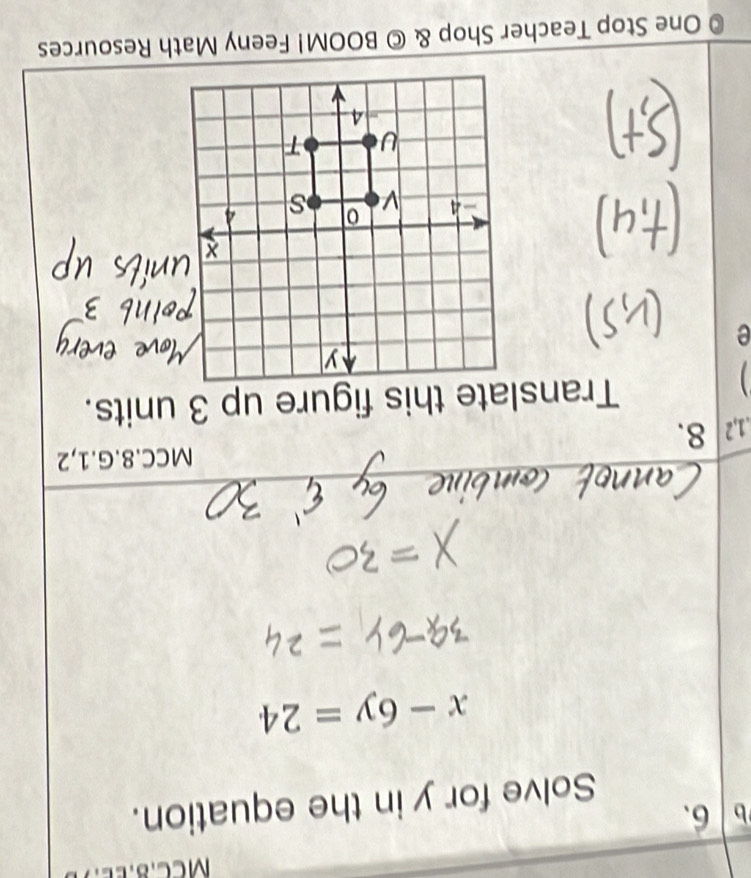 MCC.8.EE.7b
6.
Solve for y in the equation.
x - 6y = 24
= 24
X = 30
Cannot combine 6y & 30
MCC.8.G.1,2
1,2
8.
Translate this figure up 3 units.
Move every
point 3
units up
y
x
-4
0
4
V
S
U
T
-4
(v,s)
(t,u)
(s,t)
© One Stop Teacher Shop & © BOOM! Feeny Math Resources